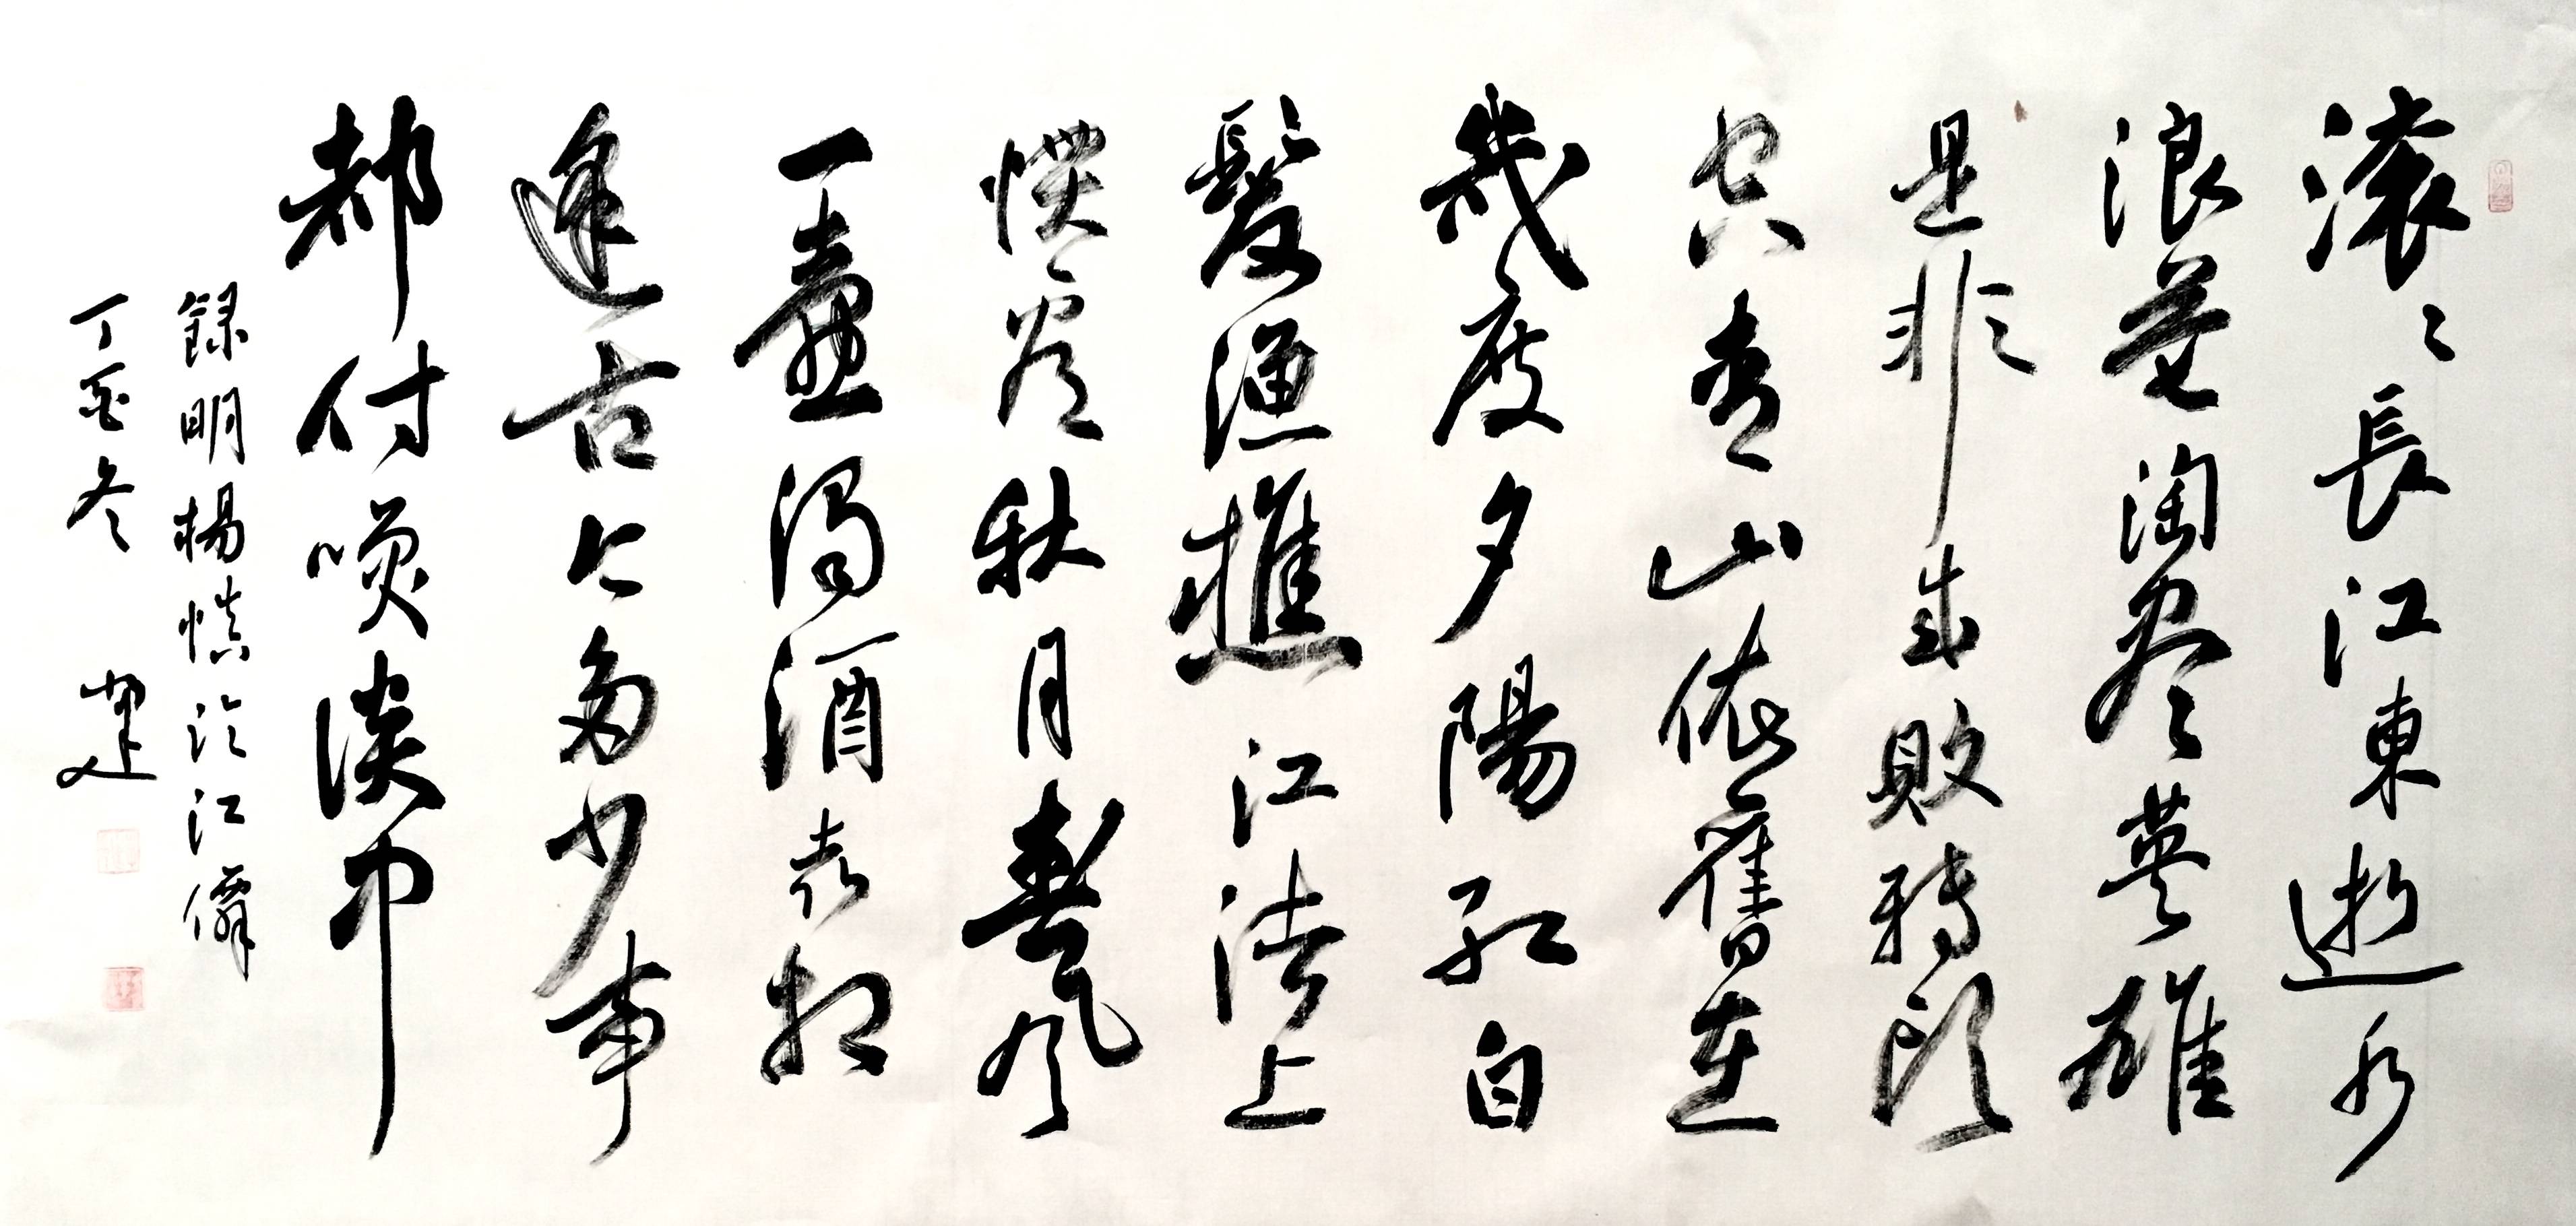 滚〻長江東逝水
浪花淘尽英雄
是非成敗轉頭
空青山依舊在
幾度夕陽紅白
髮漁樵江渚上
慣看秋月春風
一壺濁酒喜相
逢古今多少事
都付咲談中
錄明楊慎臨江僊
丁酉冬 建